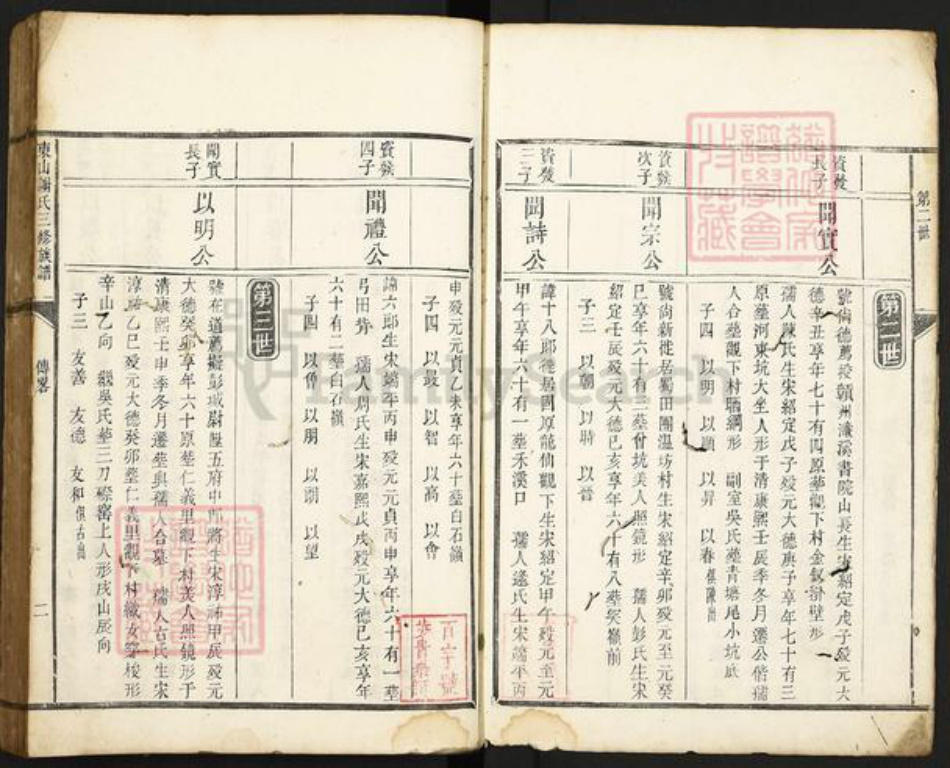 第二世
資發長子
聞實公
號尚德薦授贛州濂溪書院山長生宋紹定戊子歿元大
德辛丑享年七十有四原葬觀下村金釵掛壁形
孺人陳氏生宋紹定戊子歿元大德庚子享年七十有三
原墓河東坑大坐人形于清康熙壬辰季冬月遷公偕孺
人合墓觀下村晒網形 副室吳氏葬青塘尾小坑底
子四 以明 以順 以昇 以春俱陳出
資發次子
聞宗公
號尚新徙居蜀田團溫坊村生宋紹定辛卯歿元至元癸
巳享年六十有三葬曾坑美人照鏡形 孺人彭氏生宋
紹定壬辰歿元大德己亥享年六十有八葬癸嶺前
子三 以朝 以時 以晉
資發三子
聞詩公
諱十八郎徙居固厚龍仙觀下生宋紹定甲午歿元至元
甲午享年六十有一葬禾溪口 孺人逯氏生宋端平丙
申歿元元貞乙未享年六十葬白石嶺
子四 以最 以智 以高 以會
資發四子
聞禮公
諱六郎生宋端平丙申歿元元貞丙申享年六十有一葬
弓田背 孺人周氏生宋嘉熙戊戌歿元大德己亥享年
六十有二葬白石嶺
子四 以魯 以朋 以朝 以望
第三世
聞實長子
以明公
號在道薦擬彭城尉陞五府中郎將生宋淳祐甲辰歿元
大德癸卯享年六十原葬仁義里觀下村美人照鏡形于
清康熙壬申季冬月遷葬與孺人合墓 孺人古氏生宋
淳祐乙巳歿元大德癸卯葬仁義里觀下村織女穿梭形
辛山乙向 繼吳氏葬三刀磜窖上人形戌山辰向
子三 友善 友德 友和俱古出
東山謝氏三修族譜
傳畧
二
FamilySearch